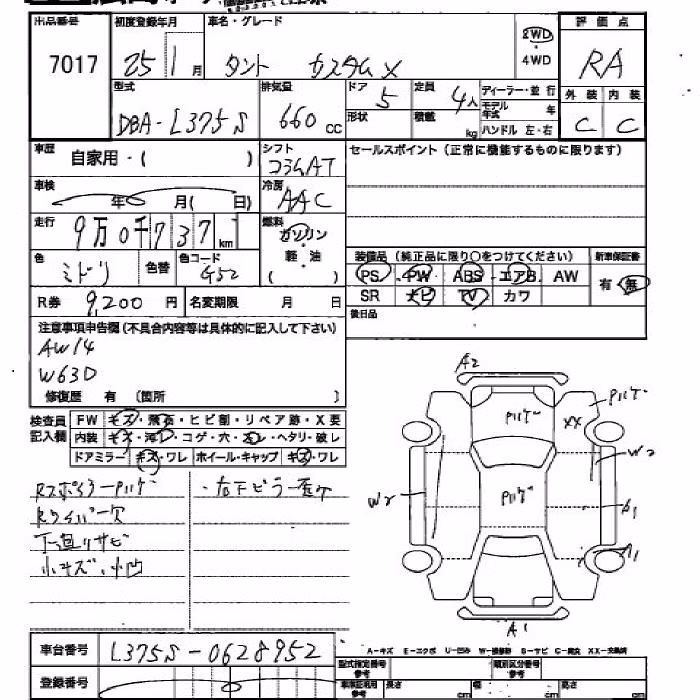 出品番号 初度登録年月 車名・グレード 評価点
7017 25 1月 タント カスタムX 2WD・4WD RA
型式 排気量 ドア 定員 ディーラー・並行 外装 内装
DBA-L375S 660cc 5 4人 モデル年式 年 C C
形状 積載 kg ハンドル 左・右
車歴 自家用・( ) シフト コラムAT セールスポイント(正常に機能するものに限ります)
車検 年 月( 日) 冷房 AAC
走行 9万0千737km 燃料 ガソリン・軽・油 ( )
装備品(純正品に限り○をつけてください) 新車保証書
色 ミドリ 色替 色コード G52
PS PW ABS エアB AW 有・無
R券 9,200円 名変期限 月 日 SR ナビ TV カワ
後日品
注意事項申告欄(不具合内容等は具体的に記入して下さい)
AW14
W630
修復歴 有 (箇所 )
検査員記入欄 FW キズ・飛石・ヒビ割・リペア跡・X要
内装 キズ・コゲ・穴・ヘタリ・破レ
ドアミラー キズ・ワレ ホイール・キャップ キズ・ワレ
RスポイラーPハゲ
Rワイパー欠
下廻りサビ
小キズ、小凹
A2
Pハゲ
Pハゲ
XX
W2
Pハゲ
W2
A1
A1
A1
車台番号 L375S-0628952
A-キズ E-エクボ U-凹み W-補修跡 S-サビ C-腐食 XX-交換済
登録番号 型式指定番号 参考 類別区分番号 参考
参考 長さ cm 幅 cm 高さ cm